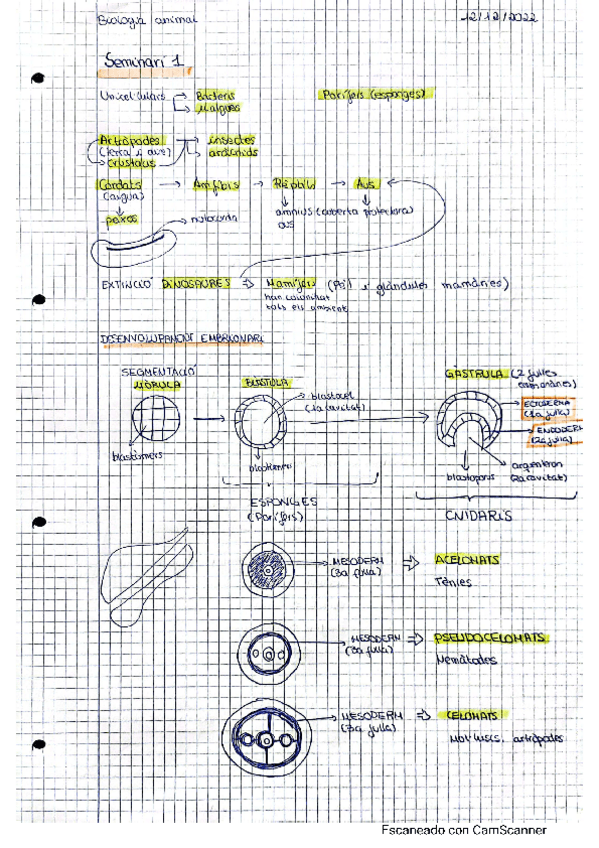 Biologia animal 12/12/2022
Seminari 1
Unicel·lulars → Bacteris Porífers (esponges)
→ Microalgues
Artròpodes → insectes
(terra i aire) → aràcnids
→ crustacis
Cordats → Amfibis → Rèptils → Aus
(aigua) amnius (coberta protectora)
peixos notocorda ous
EXTINCIÓ DINOSAURES ⇒ Mamífers (Pèl i glàndules mamàries)
han colonitzat
tots els ambients
DESENVOLUPAMENT EMBRIONARI
SEGMENTACIÓ
MÒRULA BLÀSTULA GÀSTRULA (2 fulles
embrionàries)
blastocel ECTODERM
(1a cavitat) (1a fulla)
ENDODERM
(2a fulla)
blastòmers
blastòmers blastopors arquenteron
(2a cavitat)
ESPONGES CNIDARIS
(Porífers)
MESODERM ⇒ ACELOMATS
(3a fulla)
Tènies
MESODERM ⇒ PSEUDOCELOMATS
(3a fulla)
Nemàtodes
MESODERM ⇒ CELOMATS
(3a fulla)
Mol·luscs, artròpodes
Escaneado con CamScanner